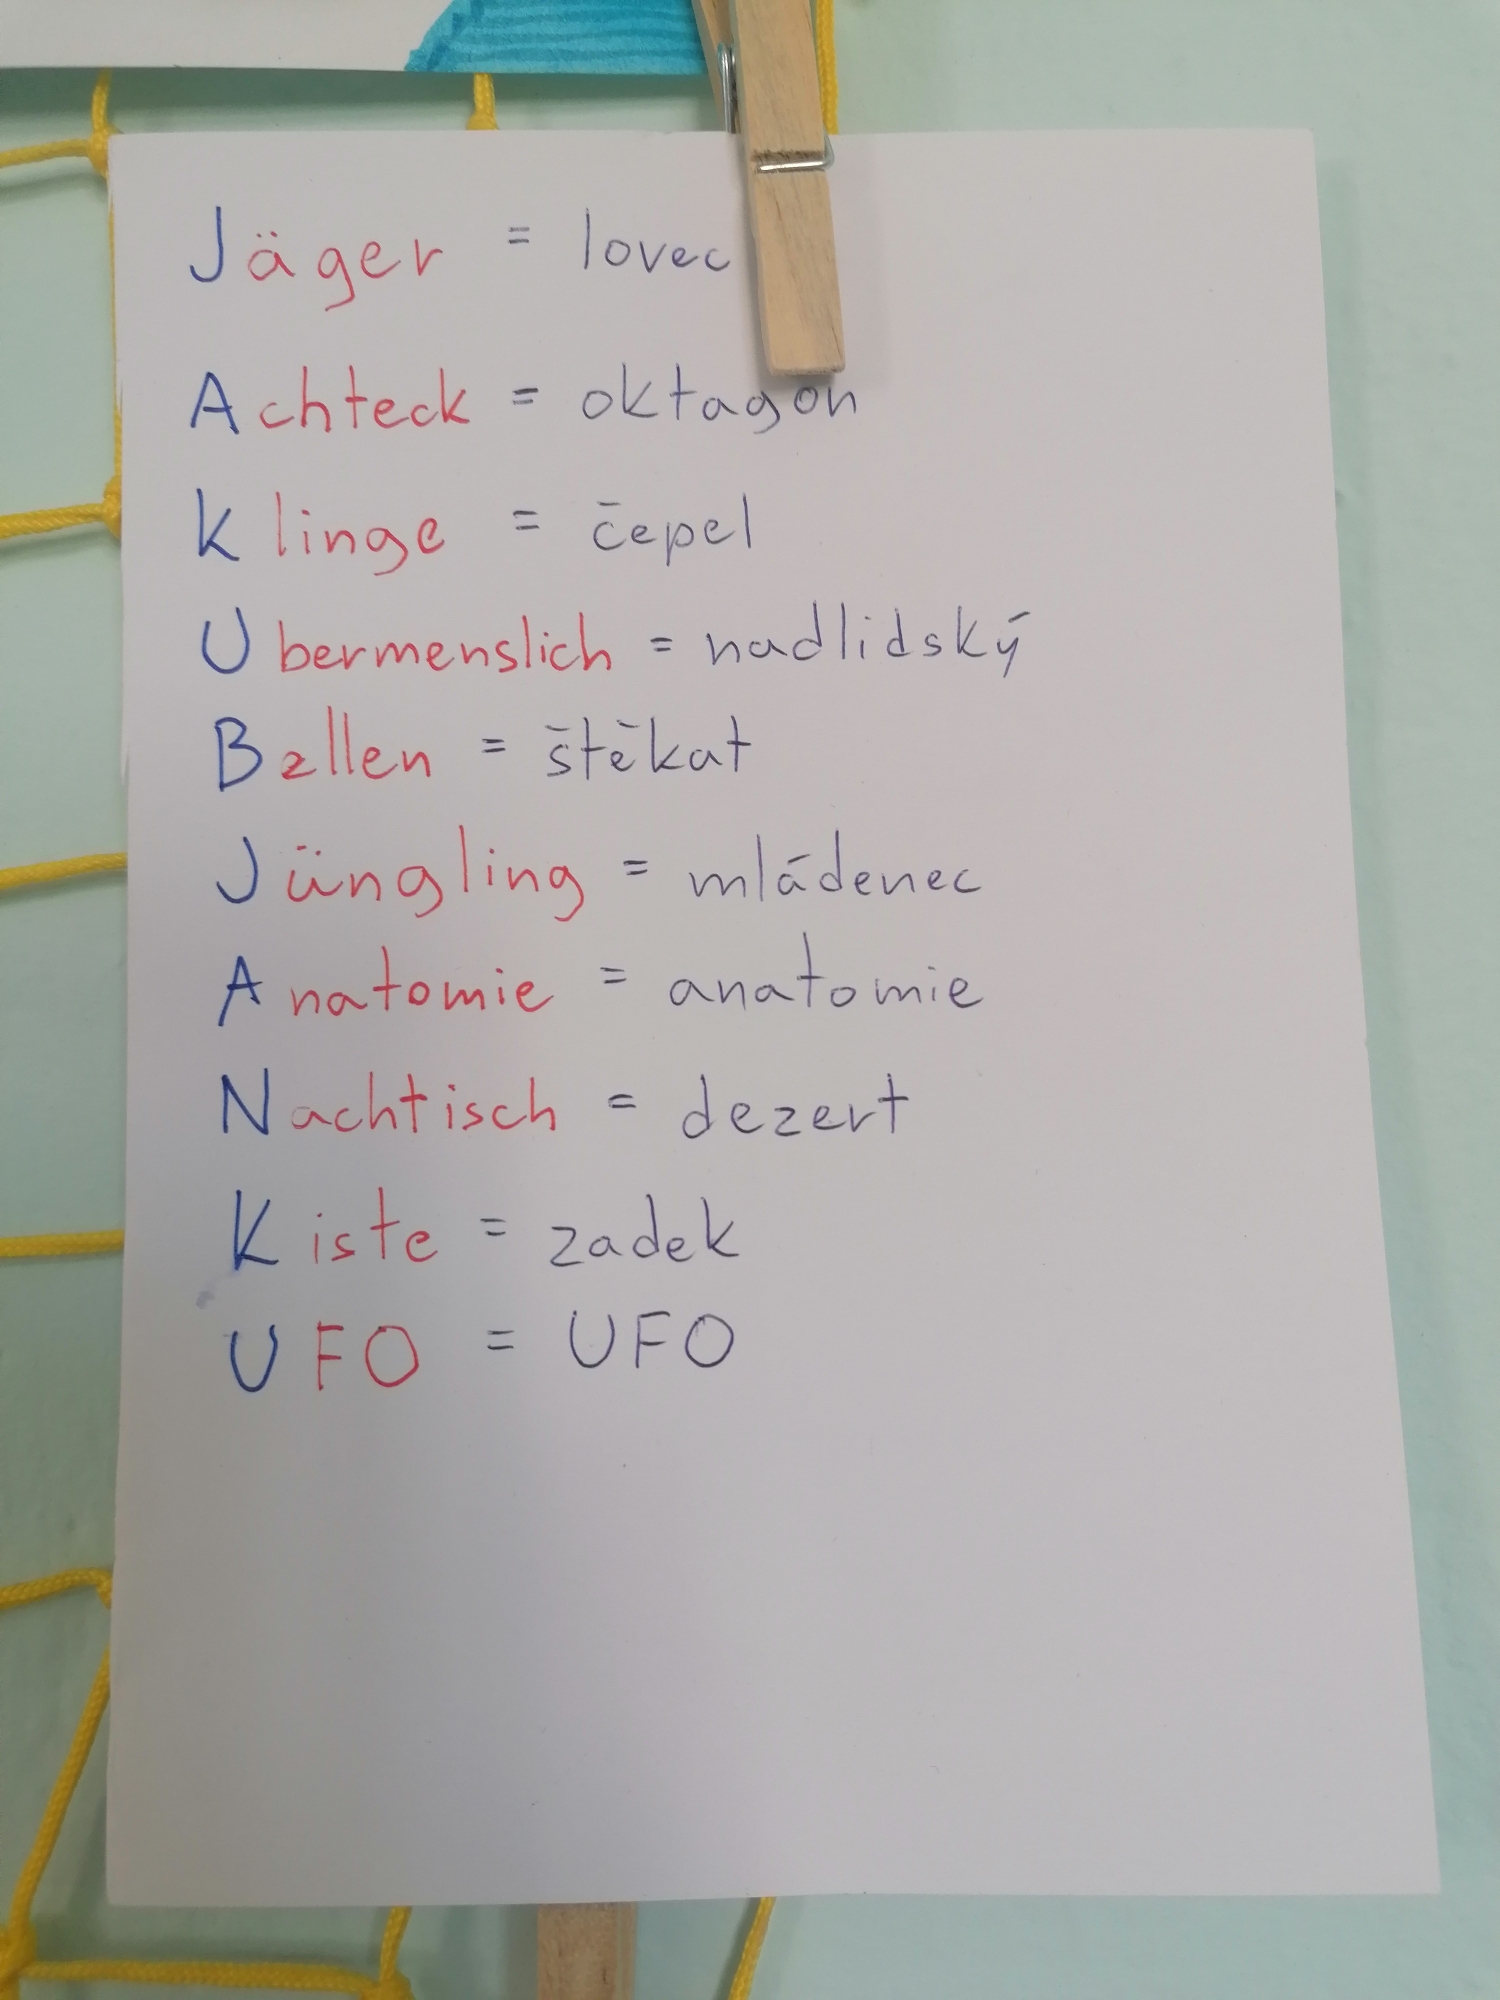 Jäger = lovec
Achteck = oktagon
Klinge = čepel
Ubermenslich = nadlidský
Bellen = štěkat
Jüngling = mládenec
Anatomie = anatomie
Nachtisch = dezert
Kiste = zadek
UFO = UFO